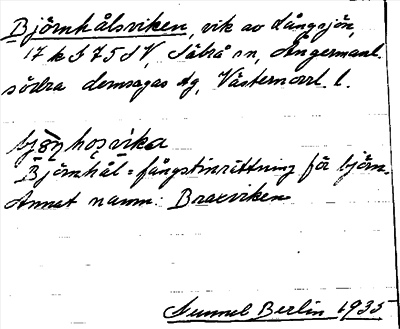 Björnhålsviken, vik av Långsjön,
17 k S 75 SV, Säbrå sn, Ångermanl.
södra domsagas tg, Västernorrl. l.
bjö̱ɳho̱ʂvika
Björnhål = fångstinrättning för björn.
Annat namn: Braxviken
Gunnel Berlin 1935